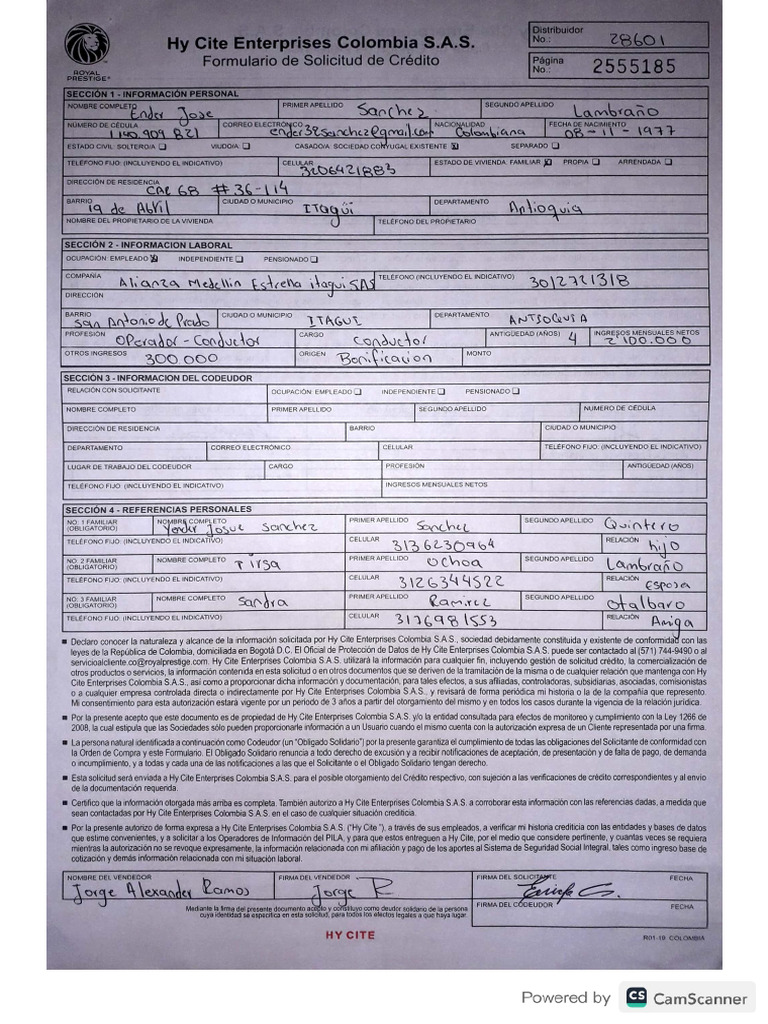 ROYAL
PRESTIGE®
Hy Cite Enterprises Colombia S.A.S.
Formulario de Solicitud de Crédito
Distribuidor
No.: 28601
Página
No.: 2555185
SECCIÓN 1 - INFORMACIÓN PERSONAL
NOMBRE COMPLETO Ender Jose PRIMER APELLIDO Sanchez SEGUNDO APELLIDO Lambraño
NÚMERO DE CÉDULA 1140.909821 CORREO ELECTRÓNICO ender32sanchez@gmail.com NACIONALIDAD Colombiana FECHA DE NACIMIENTO 08-11-1977
ESTADO CIVIL: SOLTERO/A VIUDO/A CASADO/A: SOCIEDAD CONYUGAL EXISTENTE SEPARADO
TELÉFONO FIJO: (INCLUYENDO EL INDICATIVO) CELULAR 3206421883 ESTADO DE VIVIENDA: FAMILIAR PROPIA ARRENDADA
DIRECCIÓN DE RESIDENCIA CAR 68 #36-114
BARRIO 19 de Abril CIUDAD O MUNICIPIO ITAGÜÍ DEPARTAMENTO Antioquia
NOMBRE DEL PROPIETARIO DE LA VIVIENDA TELÉFONO DEL PROPIETARIO
SECCIÓN 2 - INFORMACION LABORAL
OCUPACIÓN: EMPLEADO INDEPENDIENTE PENSIONADO
COMPAÑÍA Alianza Medellin Estrella itagui SAS TELÉFONO (INCLUYENDO EL INDICATIVO) 3012721318
DIRECCIÓN
BARRIO San Antonio de Prado CIUDAD O MUNICIPIO ITAGUI DEPARTAMENTO ANTIOQUIA
PROFESIÓN OPerador-Conductor CARGO Conductor ANTIGÜEDAD (AÑOS) 4 INGRESOS MENSUALES NETOS 2'100.000
OTROS INGRESOS 300 000 ORIGEN Bonificacion MONTO
SECCIÓN 3 - INFORMACION DEL CODEUDOR
RELACIÓN CON SOLICITANTE OCUPACIÓN: EMPLEADO INDEPENDIENTE PENSIONADO
NOMBRE COMPLETO PRIMER APELLIDO SEGUNDO APELLIDO NUMERO DE CÉDULA
DIRECCIÓN DE RESIDENCIA BARRIO CIUDAD O MUNICIPIO
DEPARTAMENTO CORREO ELECTRÓNICO CELULAR TELÉFONO FIJO: (INCLUYENDO EL INDICATIVO)
LUGAR DE TRABAJO DEL CODEUDOR CARGO PROFESIÓN ANTIGÜEDAD (AÑOS)
TELÉFONO FIJO: (INCLUYENDO EL INDICATIVO) INGRESOS MENSUALES NETOS
SECCIÓN 4 - REFERENCIAS PERSONALES
NO. 1 FAMILIAR (OBLIGATORIO) NOMBRE COMPLETO Yender Josue Sanchez PRIMER APELLIDO Sanchez SEGUNDO APELLIDO Quintero
TELÉFONO FIJO: (INCLUYENDO EL INDICATIVO) CELULAR 3136230964 RELACIÓN hijo
NO. 2 FAMILIAR (OBLIGATORIO) NOMBRE COMPLETO Tirsa PRIMER APELLIDO Ochoa SEGUNDO APELLIDO Lambraño
TELÉFONO FIJO: (INCLUYENDO EL INDICATIVO) CELULAR 3126344522 RELACIÓN Esposa
NO. 3 FAMILIAR (OBLIGATORIO) NOMBRE COMPLETO Sandra PRIMER APELLIDO Ramirez SEGUNDO APELLIDO Otalbaro
TELÉFONO FIJO: (INCLUYENDO EL INDICATIVO) CELULAR 3176981553 RELACIÓN Amiga
■ Declaro conocer la naturaleza y alcance de la información solicitada por Hy Cite Enterprises Colombia S.A.S., sociedad debidamente constituida y existente de conformidad con las
leyes de la República de Colombia, domiciliada en Bogotá D.C. El Oficial de Protección de Datos de Hy Cite Enterprises Colombia S.A.S. puede ser contactado al (571) 744-9490 o al
servicioalcliente.co@royalprestige.com. Hy Cite Enterprises Colombia S.A.S. utilizará la información para cualquier fin, incluyendo gestión de solicitud crédito, la comercialización de
otros productos o servicios, la información contenida en esta solicitud o en otros documentos que se deriven de la tramitación de la misma o de cualquier relación que mantenga con Hy
Cite Enterprises Colombia S.A.S., así como a proporcionar dicha información y documentación, para tales efectos, a sus afiliadas, controladoras, subsidiarias, asociadas, comisionistas
o a cualquier empresa controlada directa o indirectamente por Hy Cite Enterprises Colombia S.A.S., y revisará de forma periódica mi historia o la de la compañía que represento.
Mi consentimiento para esta autorización estará vigente por un periodo de 3 años a partir del otorgamiento del mismo y en todos los casos durante la vigencia de la relación jurídica.
■ Por la presente acepto que este documento es de propiedad de Hy Cite Enterprises Colombia S.A.S. y/o la entidad consultada para efectos de monitoreo y cumplimiento con la Ley 1266 de
2008, la cual estipula que las Sociedades sólo pueden proporcionarle información a un Usuario cuando el mismo cuenta con la autorización expresa de un Cliente representado por una firma.
■ La persona natural identificada a continuación como Codeudor (un "Obligado Solidario") por la presente garantiza el cumplimiento de todas las obligaciones del Solicitante de conformidad con
la Orden de Compra y este Formulario. El Obligado Solidario renuncia a todo derecho de excusión y a recibir notificaciones de aceptación, de presentación y de falta de pago, de demanda
o incumplimiento, y a todas y cada una de las notificaciones a las que el Solicitante o el Obligado Solidario tengan derecho.
■ Esta solicitud será enviada a Hy Cite Enterprises Colombia S.A.S. para el posible otorgamiento del Crédito respectivo, con sujeción a las verificaciones de crédito correspondientes y al envío
de la documentación requerida.
■ Certifico que la información otorgada más arriba es completa. También autorizo a Hy Cite Enterprises Colombia S.A.S. a corroborar esta información con las referencias dadas, a medida que
sean contactadas por Hy Cite Enterprises Colombia S.A.S. en caso de cualquier situación crediticia.
■ Por la presente autorizo de forma expresa a Hy Cite Enterprises Colombia S.A.S. ("Hy Cite"), a través de sus empleados, a verificar mi historia crediticia con las entidades y bases de datos
que estime convenientes, y a solicitar a los Operadores de Información del PILA, y para que estos entreguen a Hy Cite, por el medio que considere pertinente, y cuantas veces se requiera
mientras la autorización no se revoque expresamente, la información relacionada con mi afiliación y pago de los aportes al Sistema de Seguridad Social Integral, tales como ingreso base de
cotización y demás información relacionada con mi situación laboral.
NOMBRE DEL VENDEDOR Jorge Alexander Ramos FIRMA DEL VENDEDOR Jorge R FIRMA DEL SOLICITANTE FECHA
FIRMA DEL CODEUDOR FECHA
Mediante la firma del presente documento acepto y constituyo como deudor solidario de la persona
cuya identidad se especifica en esta solicitud, para todos los efectos legales a que haya lugar.
HY CITE
R01-19 COLOMBIA
Powered by CS CamScanner